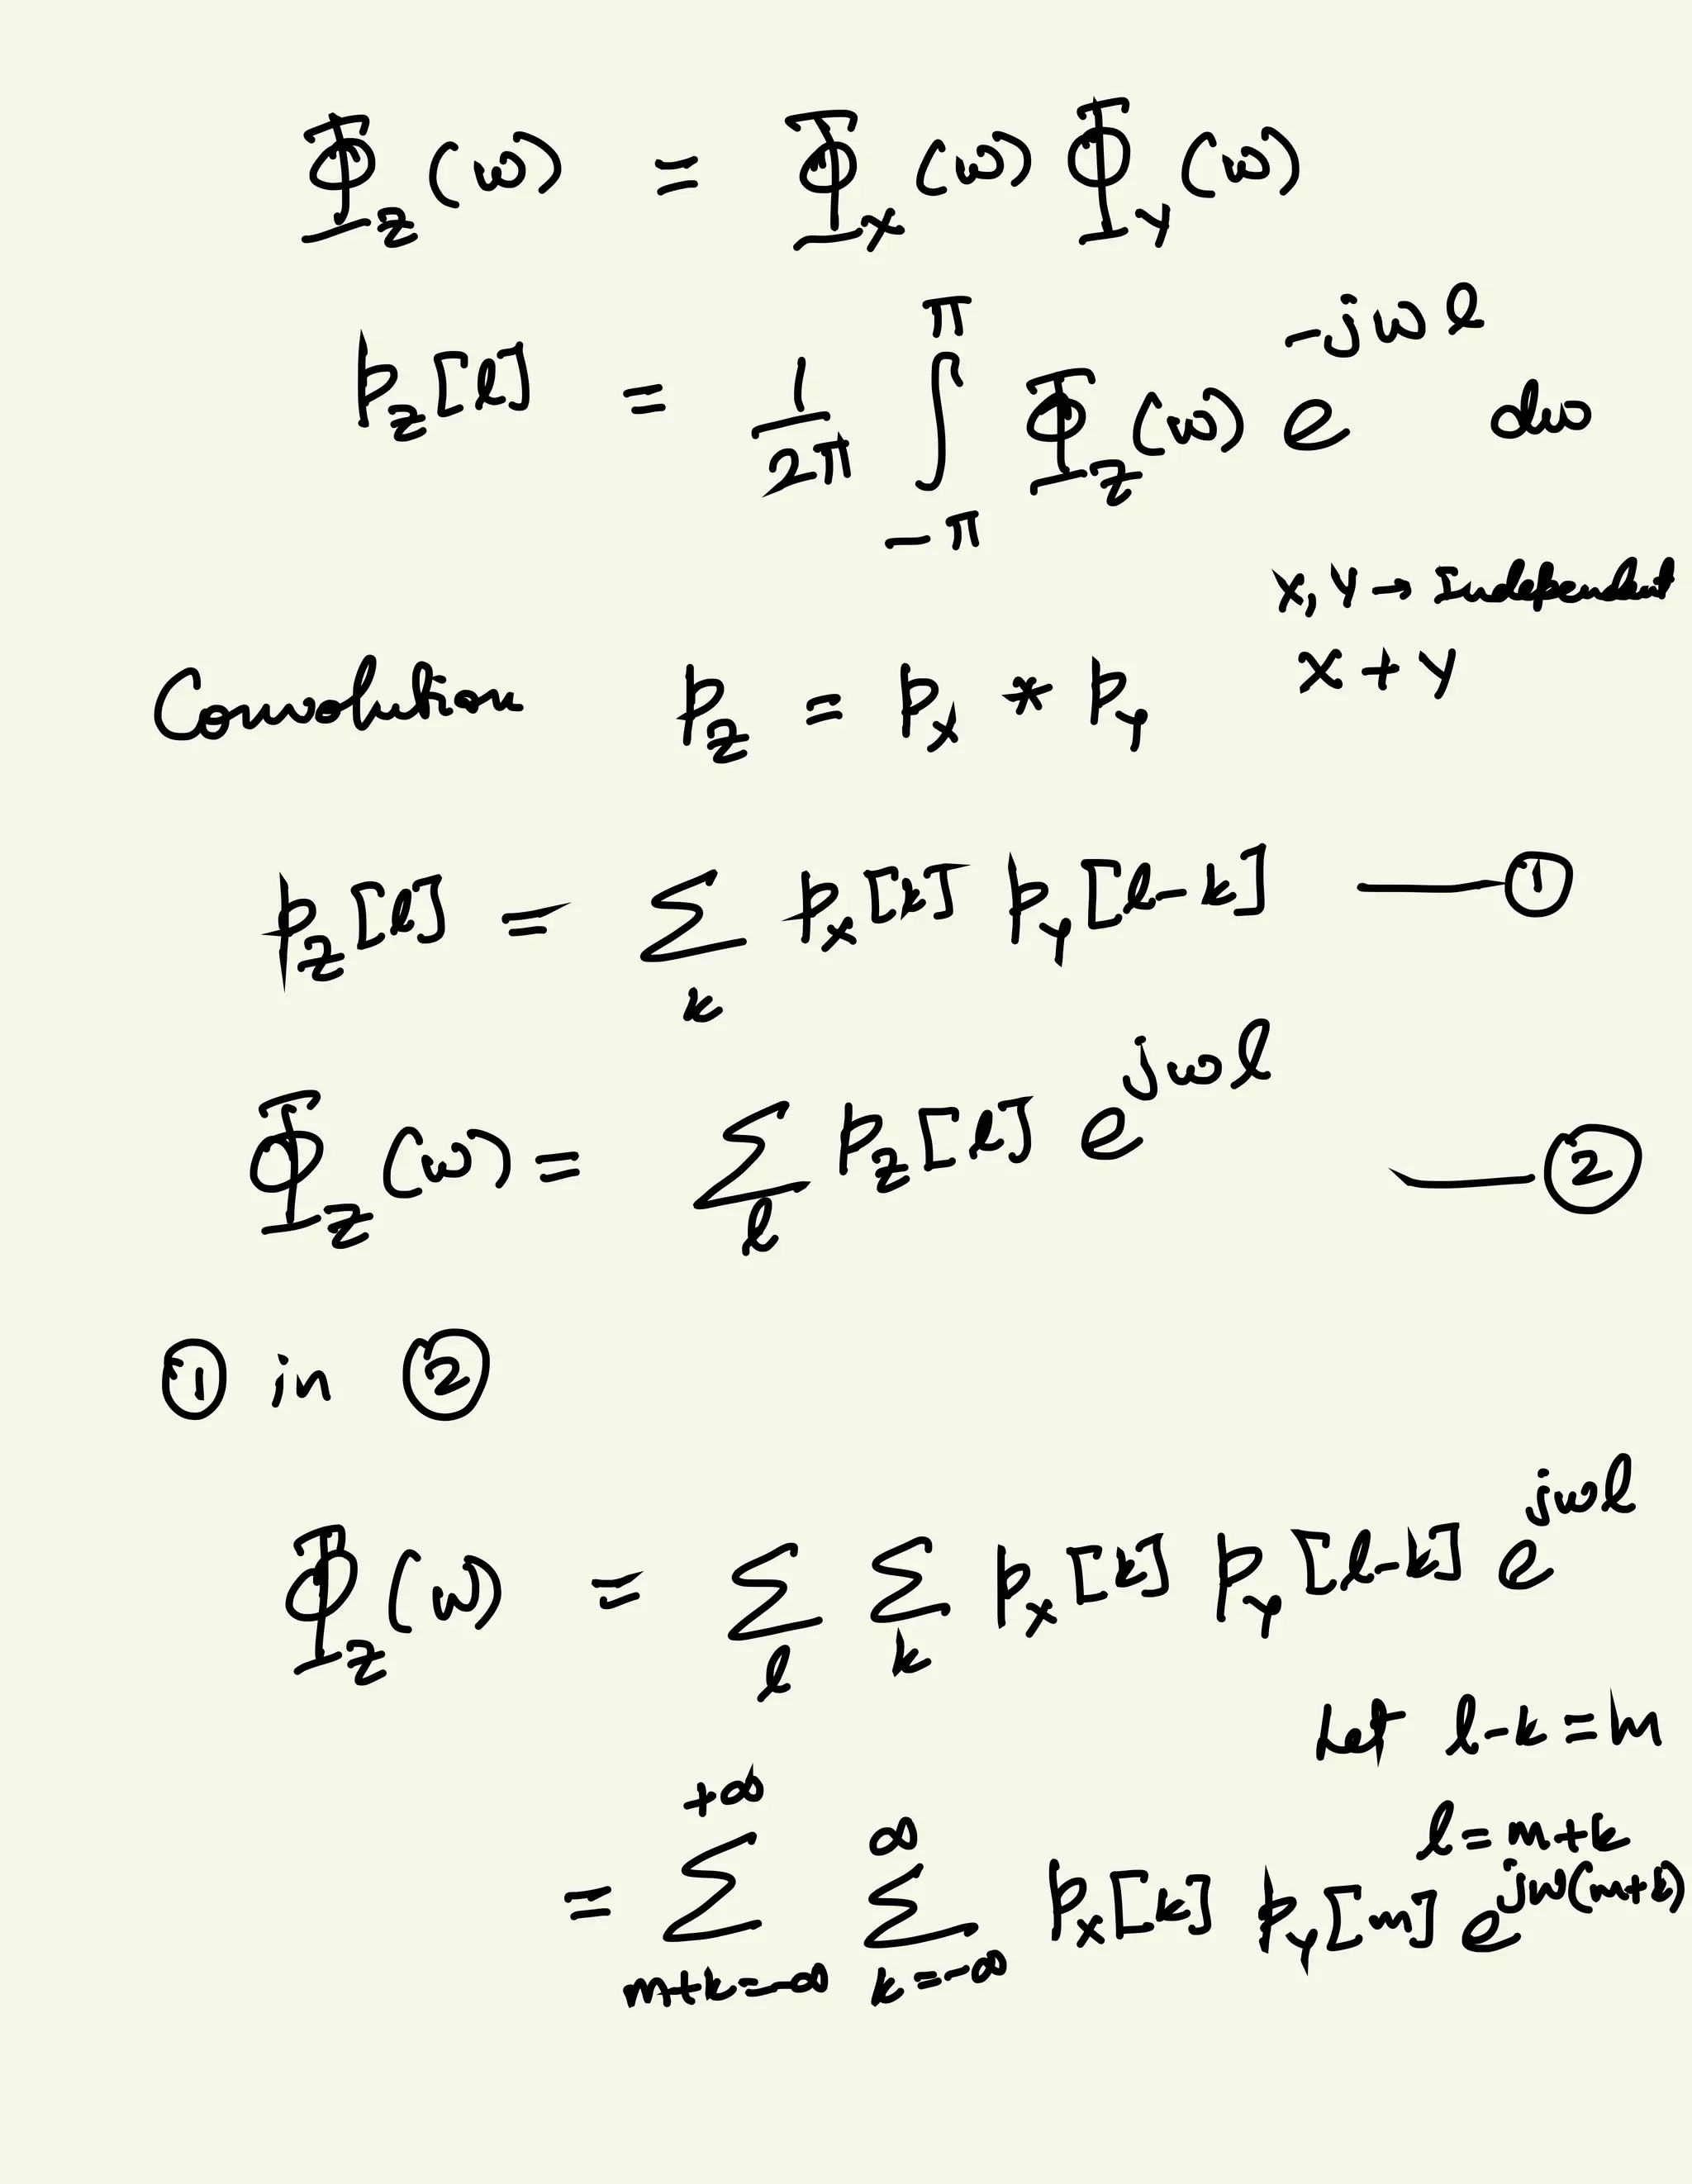 Φ_Z(ω) = Φ_X(ω) Φ_Y(ω)
p_Z[l] = 1/2π ∫_{-π}^{π} Φ_Z(ω) e^{-jωl} dω
X, Y → Independent
Convolution p_Z = p_X * p_Y X + Y
p_Z[l] = ∑_k p_X[k] p_Y[l-k] — ①
Φ_Z(ω) = ∑_l p_Z[l] e^{jωl} — ②
① in ②
Φ_Z(ω) = ∑_l ∑_k p_X[k] p_Y[l-k] e^{jωl}
Let l-k = m
l = m+k
= ∑_{m+k=-∞}^{+∞} ∑_{k=-∞}^{∞} p_X[k] p_Y[m] e^{jω(m+k)}